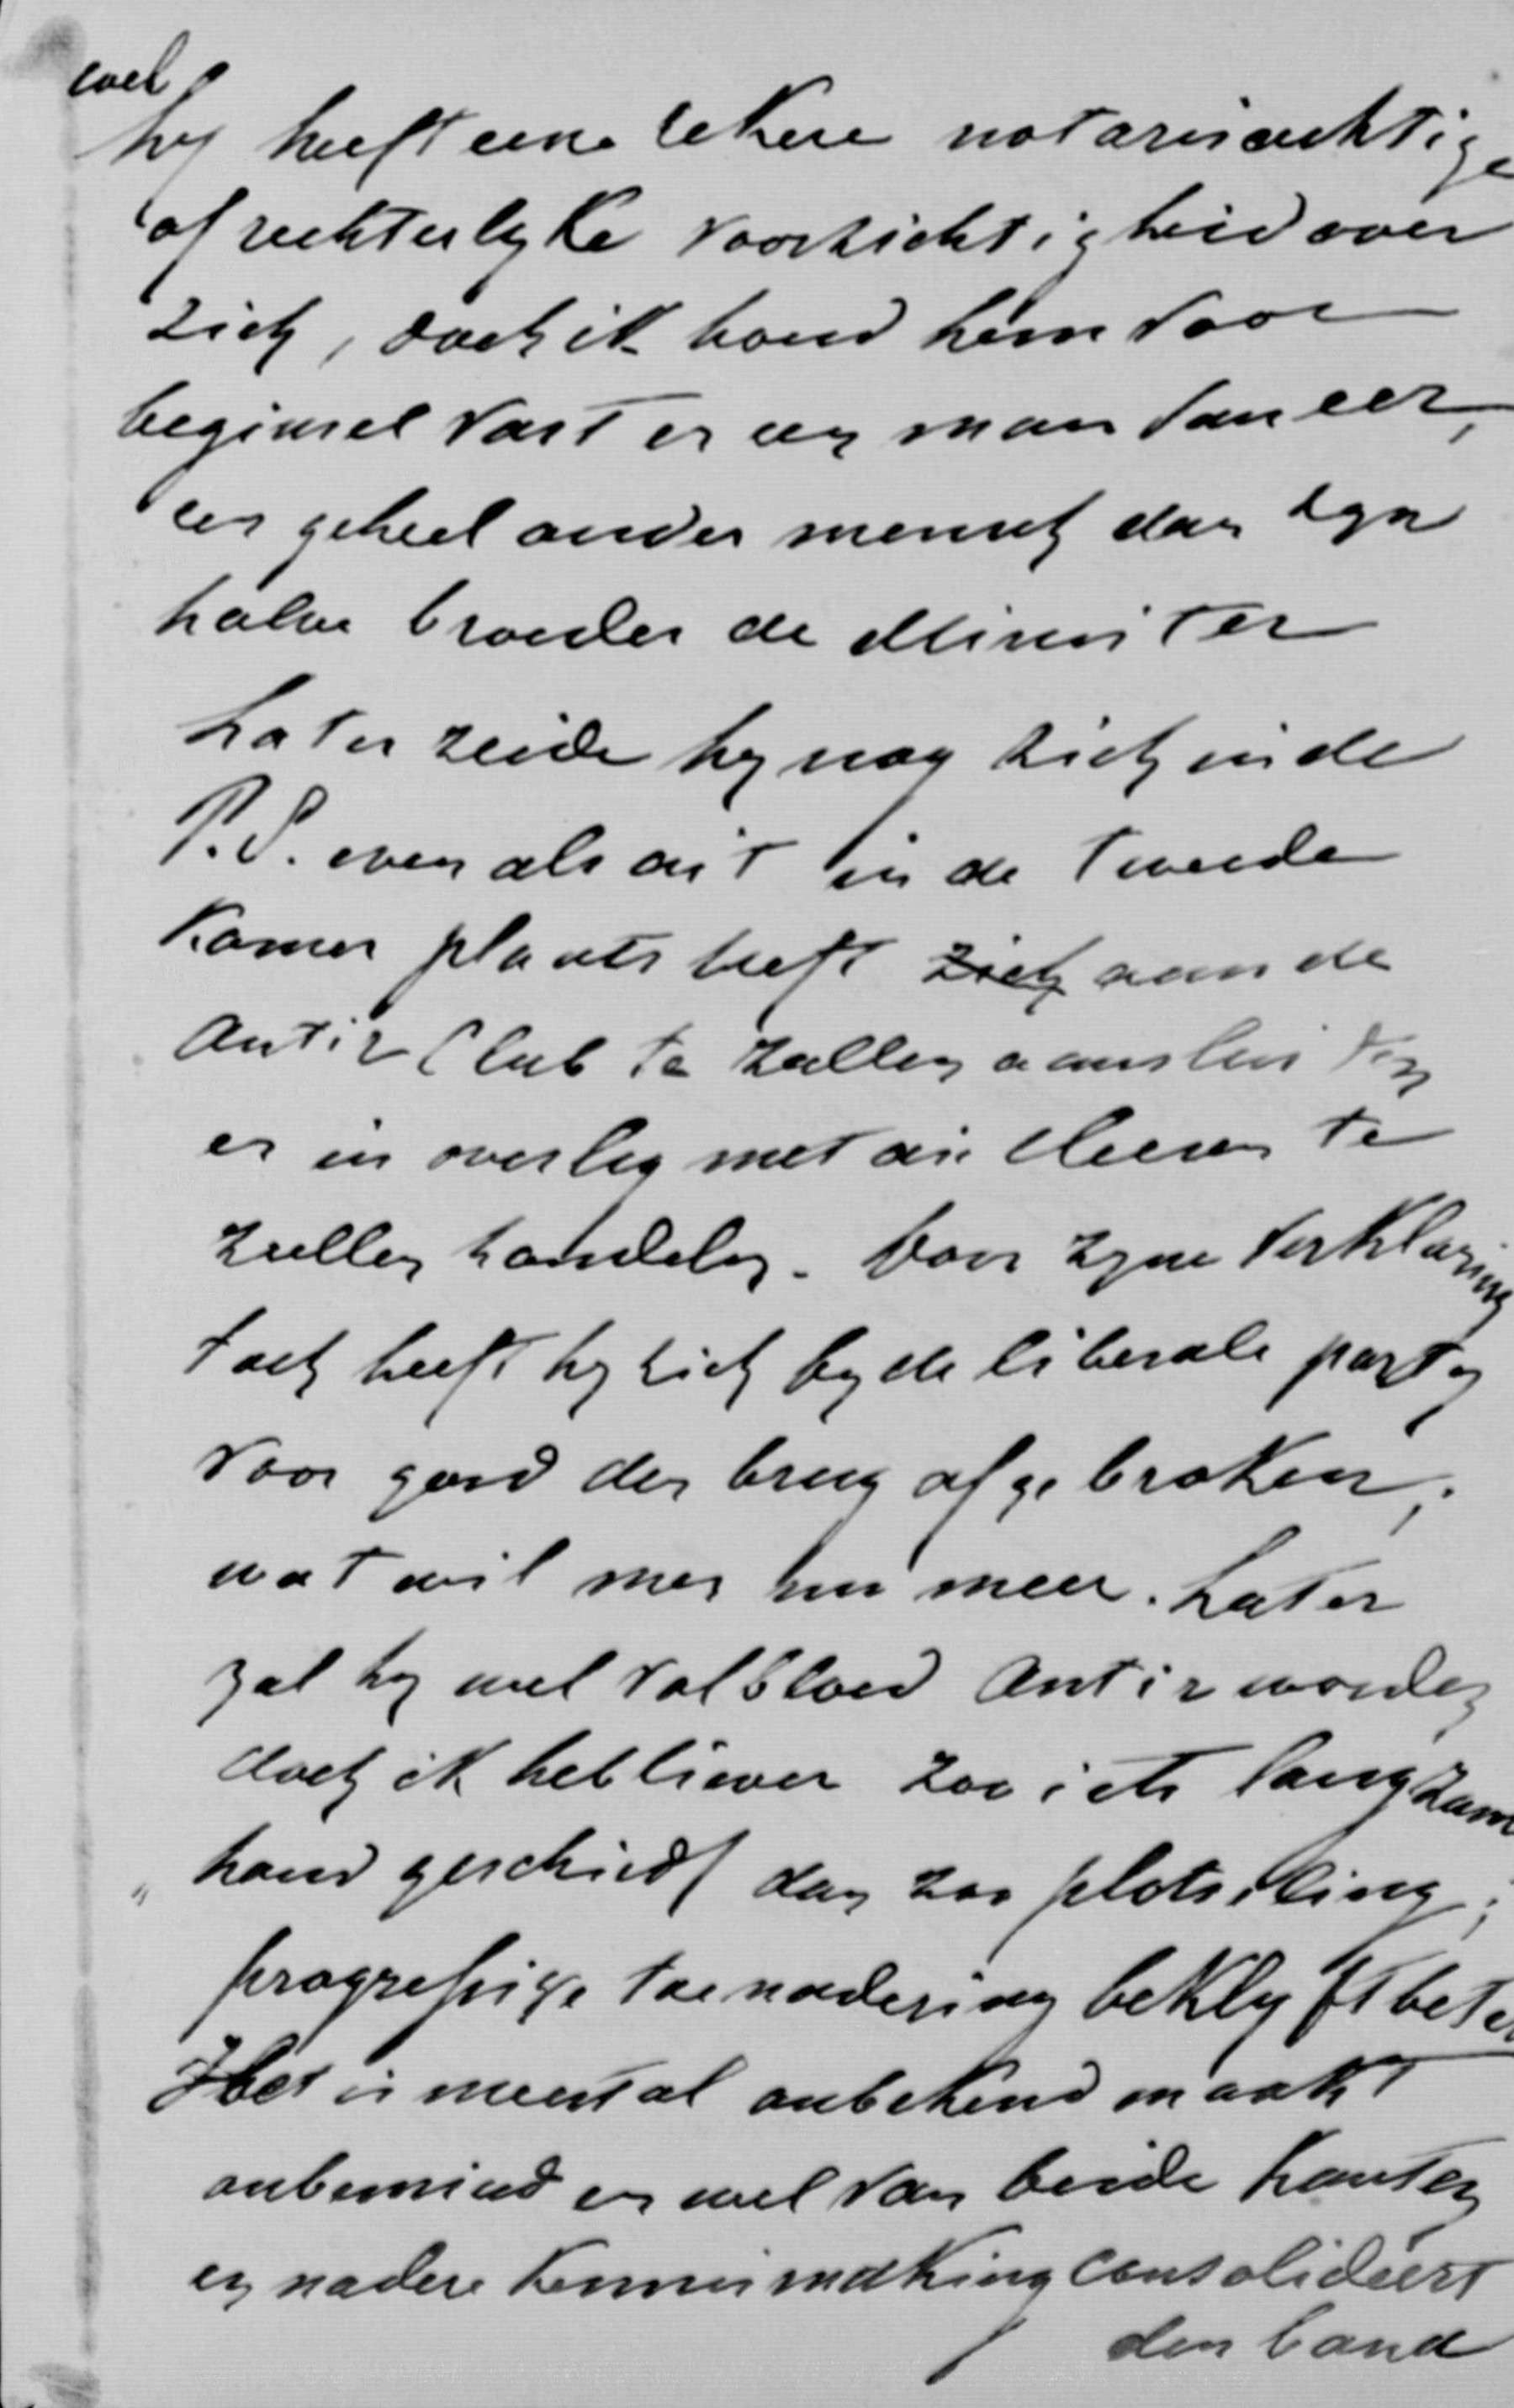 wel
hy heeft eene zekere notarisachtige
of rechterlyke voorzichtigheid over
zich, doch ik houd hem voor
beginsel vast en een man van eer,
een geheel ander mensch dan zyn
halve broeder de Minister
Later zeide hy nog zich in de
P.S. even als dit in de Tweede
Kamer plaats heeft zich aan de
Antir Club te zullen aansluiten
en in overleg met die Heeren te
zullen handelen. Door zyne verklaring
toch heeft hy zich by de liberale party
voor goed den brug afgebroken,
wat wil men nu meer. Later
zal hy wel volbloed Antir worden
doch ik heb liever zoo iets langzamer
hand geschiedt dan zoo plotseling;
progressige toenadering beklyft beter
Het is meestal onbekend maakt
onbemind en wel van beide kanten
en nadere kennismaking consolideert
den band